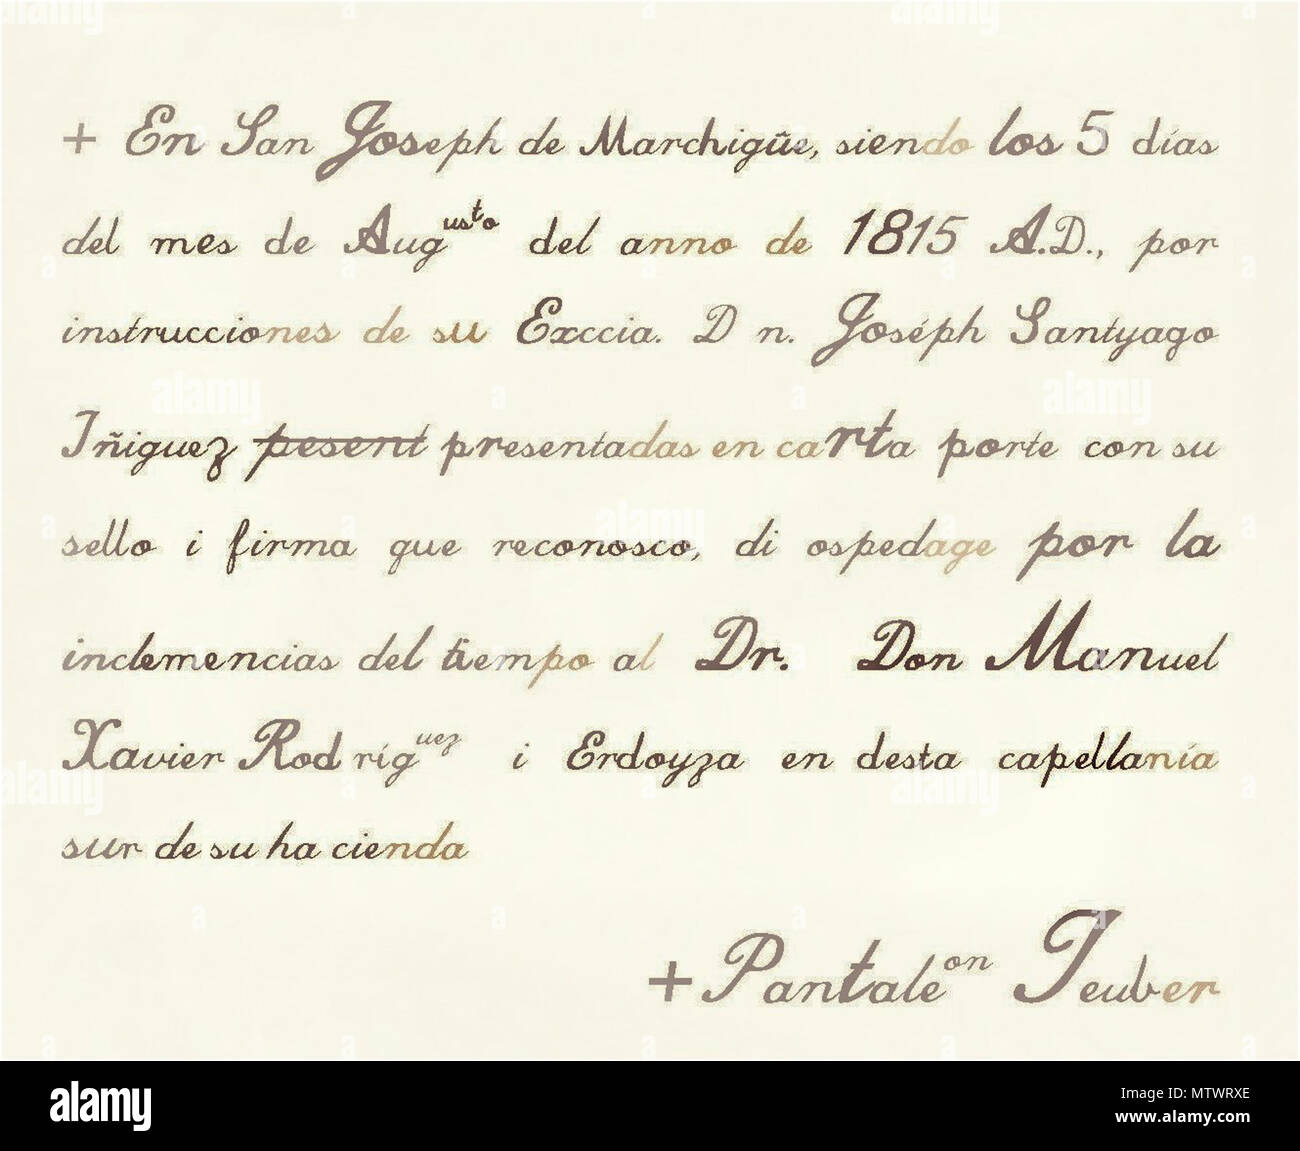 + En San Joseph de Marchigüe, siendo los 5 días
del mes de Augusto del anno de 1815 A.D., por
instrucciones de su Exccia. D n. Joséph Santyago
Iñiguez pesent presentadas en carta porte con su
sello i firma que reconosco, di ospedage por la
inclemencias del tiempo al Dr. Don Manuel
Xavier Rodríguez i Erdoyza en desta capellanía
sur de su ha cienda
+ Pantaleon Teuber
alamy
Image ID: MTWRXE
www.alamy.com